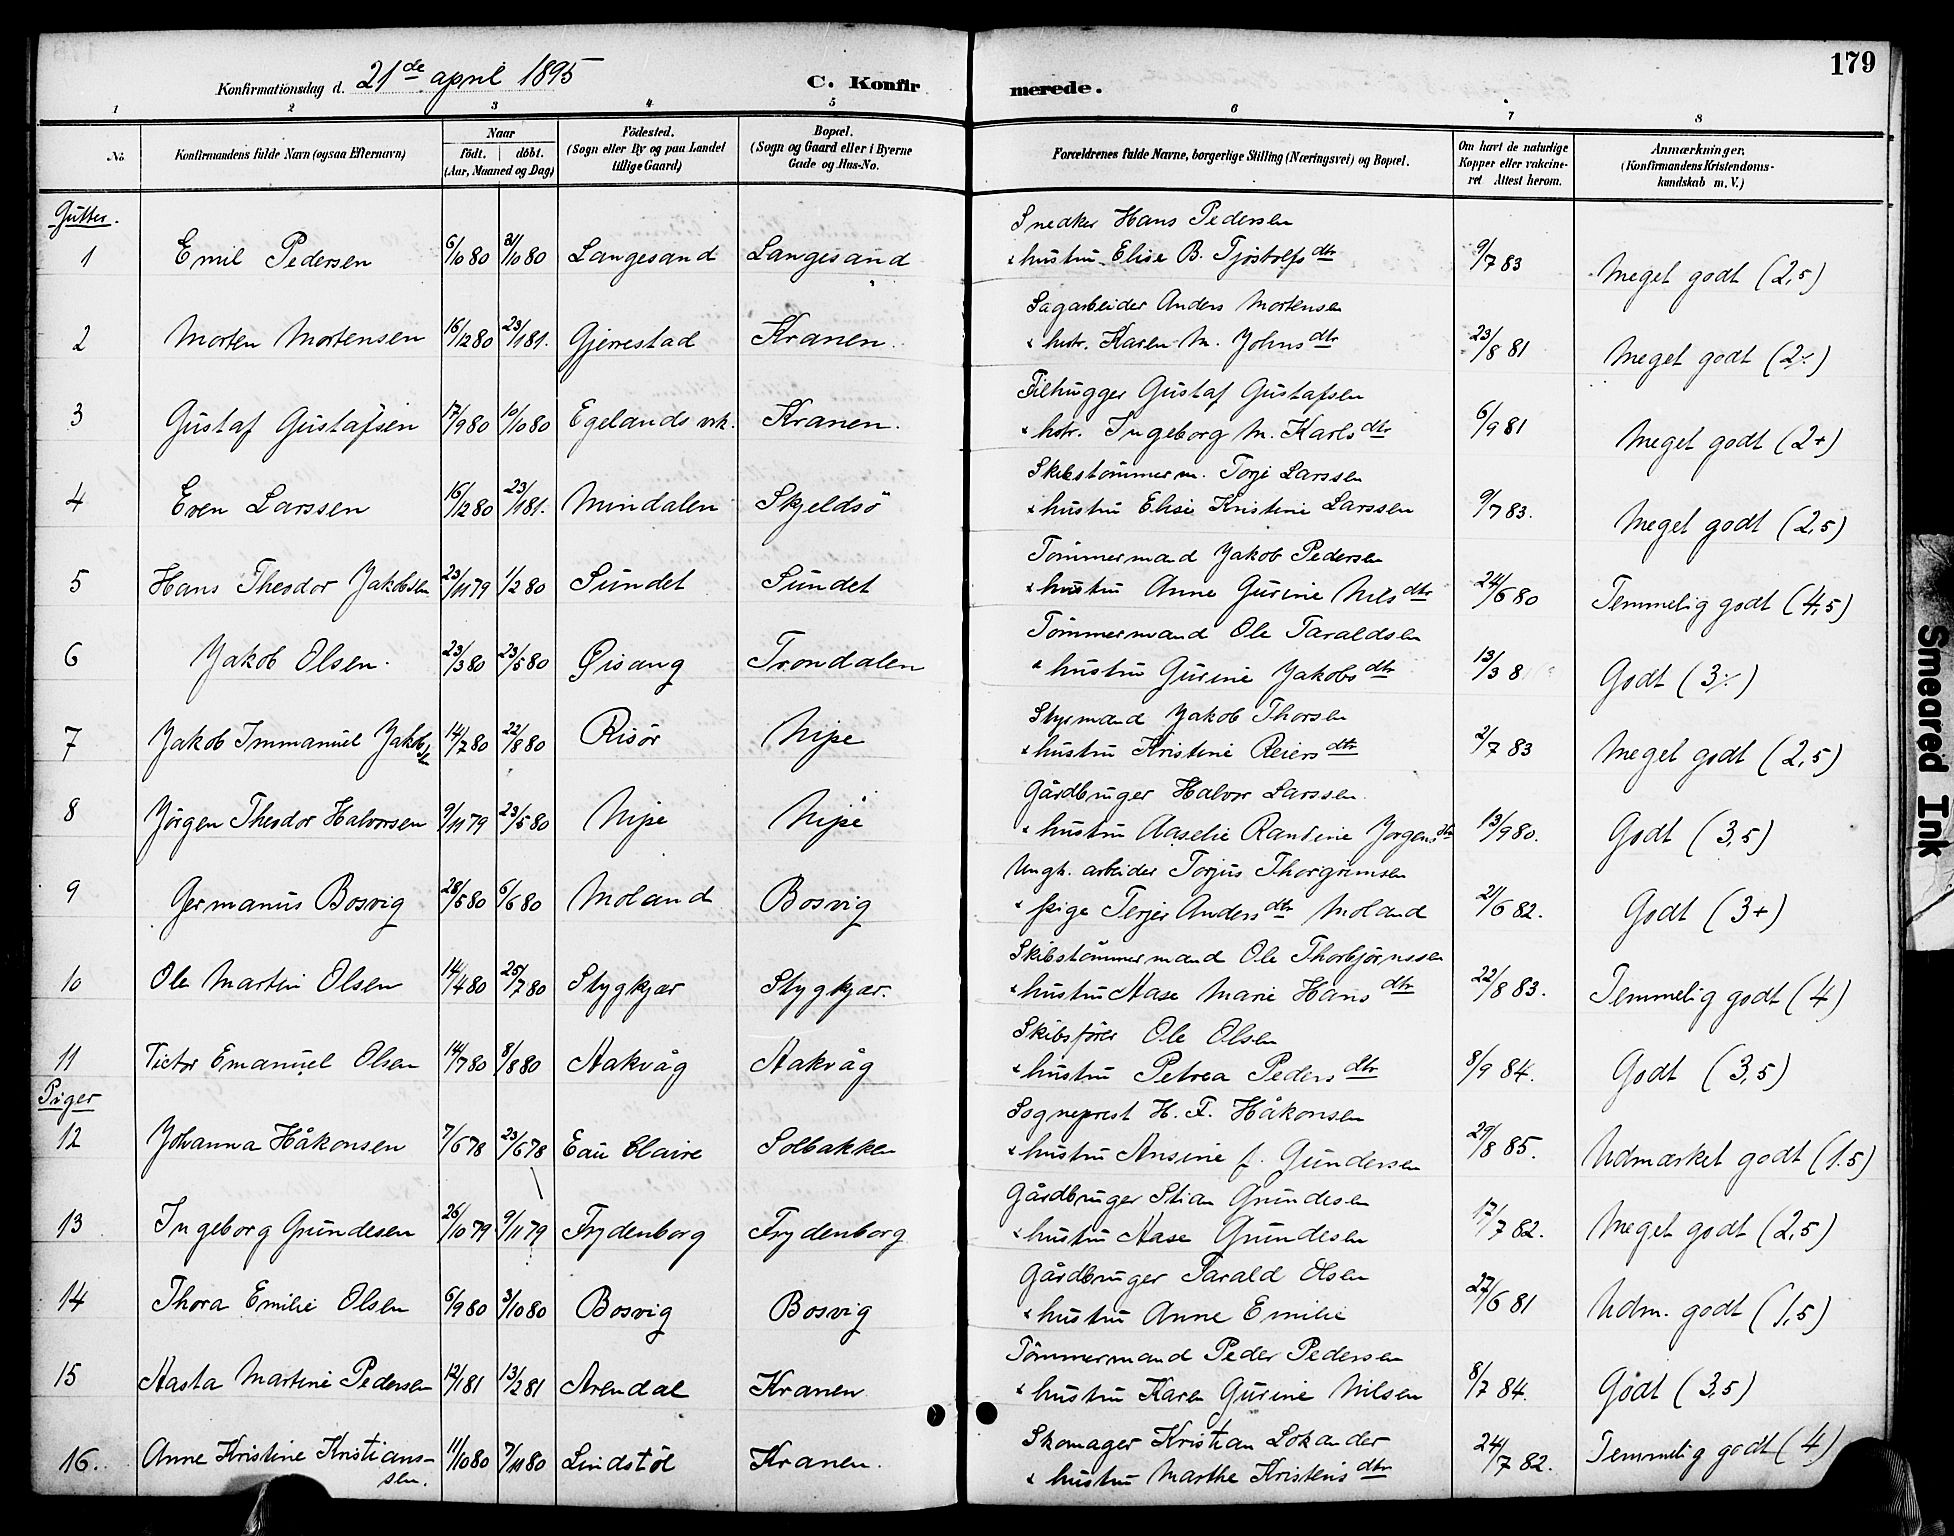 179
Konfirmationsdag d. 21de april 1895 C. Konfirmerede.
1 2 3 4 5 6 7 8
No. Konfirmandens fulde Navn (ogsaa Efternavn) Naar födt. döbt. (Aar, Maaned og Dag) Födested. (Sogn eller By og paa Landet tillige Gaard) Bopæl. (Sogn og Gaard eller i Byerne Gade og Hus-No. Forældrenes fulde Navne, borgerlige Stilling (Næringsvei) og Bopæl. Om havt de naturlige Kopper eller vakcineret Attest herom. Anmærkninger, (Konfirmandens Kristendomskundskab m. V.)
Gutter.
Snedker Hans Pedersen
1 Emil Pedersen 6/10 80 31/10 80 Langesand Langesand & hustru Elise B. Tjöstolfsdtr 9/7 83 Meget godt (2,5)
Sagarbeider Anders Mortensen
2 Morten Mortensen 16/12 80 23/1 81. Gjerrestad Kranen. & hstr. Karen M. Johnsdtr 23/8 81 Meget godt (2÷)
Filhugger Gustaf Gustafsen
3 Gustaf Gustafsen 17/9 80 10/10 80 Egelands vrk. Kranen. & hstr. Ingeborg M. Karlsdtr 6/9 81 Meget godt (2+)
Skibstömmerm. Torje Larssen
4 Even Larssen 16/12 80 23/1 81. Mindalen Skjeldsö & hustru Elise Kristine Larssen 9/7 83. Meget godt (2,5)
Tömmermand Jakob Pedersen
5 Hans Theodor Jakobsen 23/11 79 1/2 80 Sundet Sundet & hustru Anne Gurine Nilsdtr 24/6 80 Temmelig godt (4,5)
Tömmermand Ole Taraldsen
6 Jakob Olsen. 23/3 80 23/5 80 Gisang Trondalen & hustru Gurine Jakobsdtr 13/3 8 Godt (3÷)
Styrmand Jakob Thorsen
7 Jakob Immanuel Jakobsen 14/7 80 22/8 80 Risör Nipe & hustru Kristine Reiersdtr 2/7 83 Meget godt (2,5)
Gårdbruger Halvor Larssen.
8 Jörgen Theodor Halvorsen 9/11 79 23/5 80 Nipe Nipe & hustru Aaselie Rantine Jorgensdtr 13/9 80. Godt (3,5)
Ungk. arbeider Torjus Thorgrimsen
9 Germanus Bosvig 28/5 80 6/6 80 Moland Bosvig & pige Terjer Andersdtr Moland 21/6 82. Godt (3+)
Skibstömmermand Ole Thorbjörnssen
10 Ole Martin Olsen 14/4 80 25/7 80 Stygkjær Stygkjær. & hustru Aase Marie Hansdtr 22/8 83. Temmelig godt (4)
Skibsförer Ole Olsen
11 Victor Emanuel Olsen 14/7 80 8/8 80 Aakvåg Aakvåg & hustru Petrea Pedersdtr 8/9 84. Godt (3,5)
Piger
Sogneprest H. F. Håkonsen
12 Johanna Håkonsen 7/6 78 23/6 78 Eau Claire Solbakken & hustru Ansine f. Gundersen 29/8 85. Udmærket godt (1.5)
Gårdbruger Stian Grundesen
13 Ingeborg Grundesen 26/10 79 9/11 79 Frydenborg Frydenborg & hustru Aase Grundesen 17/7 82. Meget godt (2,5)
Gårdbruger Tarald Olsen
14 Thora Emilie Olsen 6/9 80 3/10 80 Bosvig Bosvig & hustru Anne Emilie 27/6 81 Udm. godt (1,5)
Tömmermand Peder Pedersen
15 Aasta Martine Pedersen 12/1 81 13/2 81 Arendal Kranen & hustru Karen Gurine Nilsen 8/7 84. Godt (3,5)
Skomager Kristian Lokander
16. Anne Kristine Kristianssen. 11/10 80 7/11 80 Lindstöl Kranen. & hustru Marthe Kristensdtr 24/7 82. Temmelig godt (4)
Smeared Ink